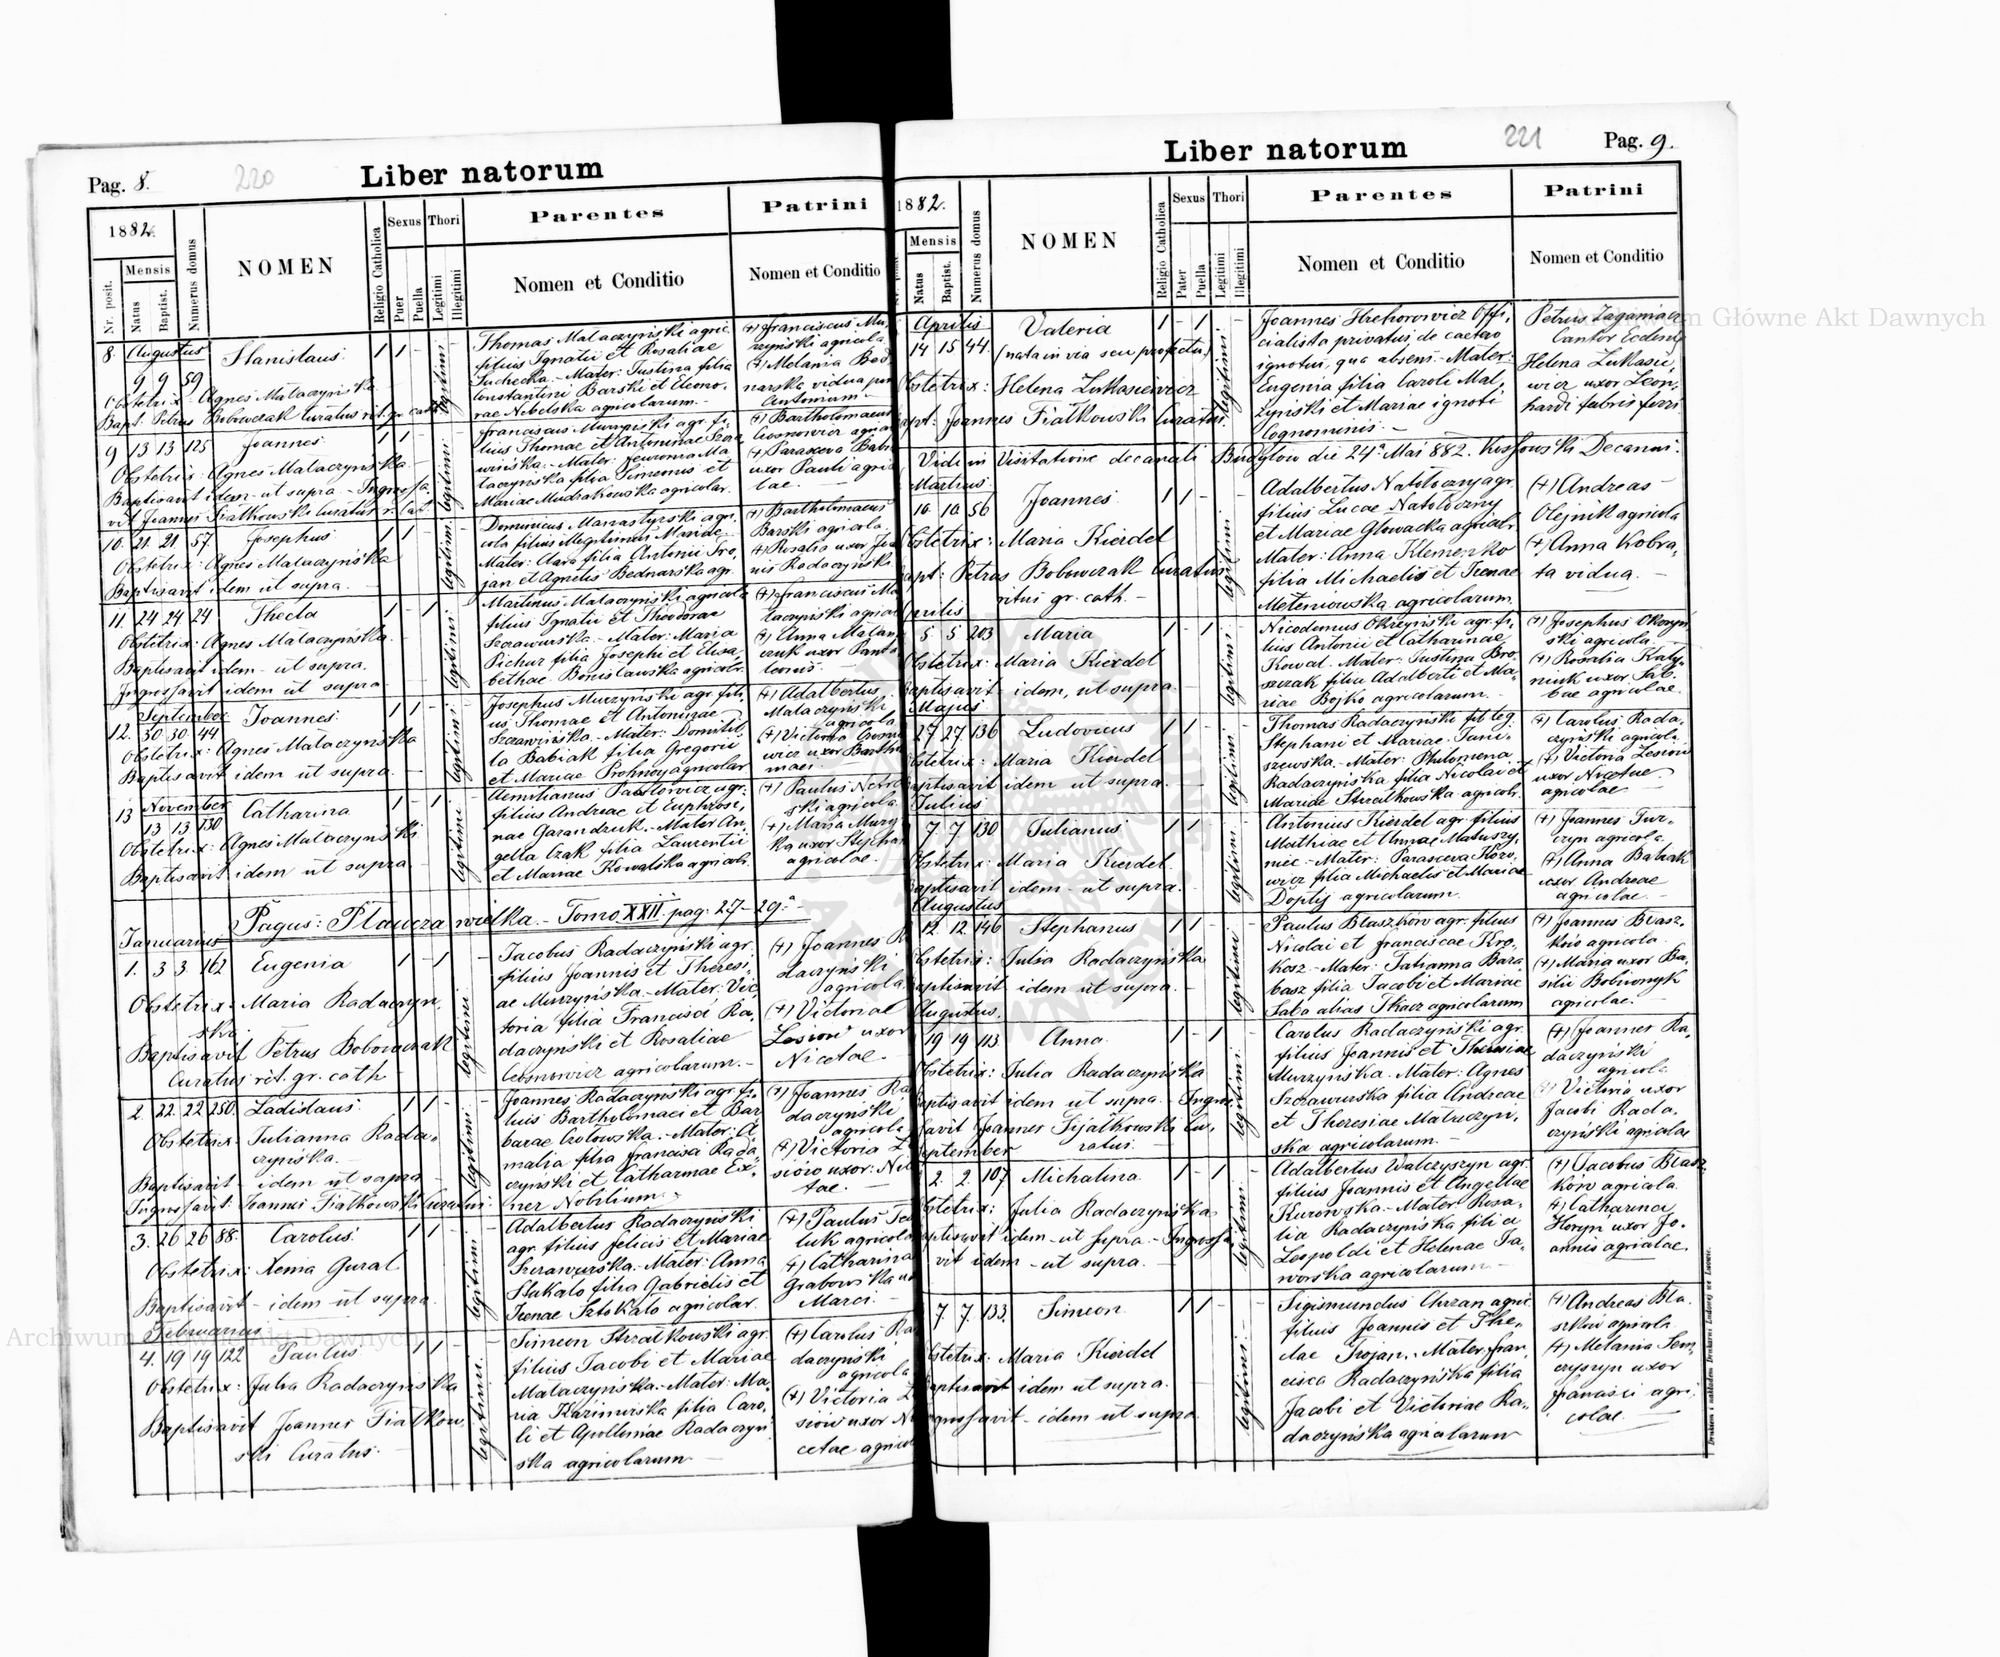 Pag. 8.
220
Liber natorum
1882.
Nr. posit.
Mensis
Natus
Baptist.
Numerus domus
NOMEN
Religio Catholica
Sexus
Puer
Puella
Thori
Legitimi
Illegitimi
Parentes
Nomen et Conditio
Patrini
Nomen et Conditio
8. Augustus
9 9 59
Stanislaus
1 1 -
legitimi
Obstetrix - Agnes Malaczyńska
Bapt. Petrus Bobowczak Curatus rit. gr. cath.
Thomas Malaczyński agric.
filius Ignatii et Rosaliae
Suchecka - Mater: Justina filia
Constantini Barski et Eleono-
rae Nebelska agricolarum -
(+) Franciscus Mu-
rzyński agricola
(+) Melania Bed
narska vidua post
Antonium -
9 13 13 125
Joannes
1 1 -
legitimi
Obstetrix: Agnes Malaczyńska
Baptisavit idem ut supra - Ingrossa-
vit Joannes Fiałkowski Curatus r. lat.
Franciscus Murzyński agr. fi-
lius Thomae et Antoninae Szcza
wińska - Mater: Feuronia Ma
laczyńska filia Simeonis et
Mariae Mudrakowska agricolar.
(+) Bartholomaeus
Cosnowicz agricola
(+) Parasceva Babi
uxor Pauli agrico
lae. -
10. 21. 21. 57.
Josephus
1 1 -
legitimi
Obstetrix: Agnes Malaczyńska
Baptisavit idem ut supra -
Dominicus Manastyrski agri
cola filius illegitimus Mariae
Mater: Clara filia Antonii Tro-
jan et Agnetis Bednarska agr.
(+) Bartholomaeus
Barski agricola
(+) Rosalia uxor Joa
nis Radaczyński
11. 24 24 24
Thecla
1 - 1 -
legitimi
Obstetrix: Agnes Malaczyńska
Baptisavit idem - ut supra.
Ingrossavit idem ut supra
Martinus Malaczyński agricola
filius Ignatii et Theodorae
Szczawurska - Mater: Maria
Pichur filia Josephi et Elisa-
bethae Bonislawska agricolar.
(+) Franciscus Ma
laczyński agricola
(+) Anna Malan
czuk uxor Panta
leonis -
September
12. 30 30 44
Joannes
1 1 -
legitimi
Obstetrix: Agnes Malaczyńska
Baptisavit idem ut supra. -
Josephus Murzyński agr. fili-
us Thomae et Antoninae
Szczawińska - Mater: Domitil-
la Babiak filia Gregorii
et Mariae Prohnoy agricolar
(+) Adalbertus
Malaczyński
agricola
(+) Victoria Cosno
wicz uxor Bartho
maei.
November
13 13 13 130
Catharina
1 - 1 -
legitimi
Obstetrix: Agnes Malaczyńska
Baptisavit idem ut supra
Aemilianus Pawłowicz agr.
filius Andreae et Euphrosi-
nae Garandruk - Mater An-
gella Czak filia Laurentii
et Mariae Kowalska agricolr.
(+) Paulus
ski agricola
(+) Maria Murz
ka uxor Stephani
agricolae -
Pagus: Płaucza wielka. - Tomo XXII. pag. 27 - 29. -
Januarius
1. 3 3 162
Eugenia
1 - 1
legitimi
Obstetrix: Maria Radaczyń-
ska
Baptisavit Petrus Bobowczak
Curatus rit. gr. cath
Jacobus Radaczyński agr.
filius Joannis et Theresi-
ae Murzyńska - Mater: Vic
toria filia Francisci Ra-
daczyński et Rosaliae
Cosnowicz agricolarum. -
(+) Joannes R
daczyński
agricola
(+) Victoriae
Lesiow uxor
Nicetae. -
2 22. 22 250.
Ladislaus
1 1 -
legitimi
Obstetrix: Julianna Rada-
czyńska. -
Baptisavit - idem ut supra
Ingrossavit: Joannes Fiałkowski Curatus
Joannes Radaczyński agr. fi-
lius Bartholomaei et Bar
barae Czotowska. - Mater: A-
malia filia Francisci Rada
czyński et Catharinae Ex-
ner Nobilium. -
(+) Joannes Ra
daczyński
agricola
(+) Victoria L
siow uxor Nic
tae. -
3. 26 26 88.
Carolus
1 1 -
legitimi
Obstetrix: Xenia Gural
Baptisavit - idem ut supra.
Adalbertus Radaczyński
agr. filius Felicis et Mariae
Szczawurska. - Mater: Anna
Stukało filia Gabrielis et
Irenae Sztukało agricolar.
(+) Paulus
luk agricola
(+) Catharina
Grabowska ux
Marci. -
Februarius
4. 19 19 122
Paulus
1 1 -
legitimi
Obstetrix: Julia Radaczyńska
Baptisavit Joannes Fiałkow-
ski Curatus. -
Simeon Strzałkowski agr.
filius Jacobi et Mariae
Malaczyńska. - Mater: Ma-
ria Kazimirska filia Caro-
li et Apolloniae Radaczyń
ska agricolarum -
(+) Carolus Ra
daczyński
agricola
(+) Victoria L
siow uxor Ni
cetae agricol
Liber natorum
221
Pag. 9.
1882.
Mensis
Natus
Baptist.
Numerus domus
NOMEN
Religio Catholica
Sexus
Pater
Puella
Thori
Legitimi
Illegitimi
Parentes
Nomen et Conditio
Patrini
Nomen et Conditio
Aprilis
14 15 44
Valeria
(nata in via seu profectu)
1 - 1
legitimi
Obstetrix: Helena Łukasiewicz
apt: Joannes Fiałkowski Curatus
Joannes Hrehorowicz Offi-
cialista privatus, de caetero
ignotus, qua absens - Mater:
Eugenia filia Caroli Mal-
żyński et Mariae ignoti
Cognominis. -
Petrus Zagamiacz
Cantor Ecclesiae
Helena Łukasie-
wicz uxor Leon-
hardi fabris ferri
Vidi in Visitatione decanali Budyłow die 24a Mai 882. Kossowski Decanus.
Martius
10. 10 56
Joannes
1 1 -
legitimi
Obstetrix: Maria Kierdel
apt: Petrus Bobowczak Curatus
ritus gr. cath. -
Adalbertus Natoloczny agr.
filius Lucae Natoloczny
et Mariae Głowacka agricolr
Mater: Anna Klemenko
filia Michaelis et Irenae
Meteniowska agricolarum.
(+) Andreas -
Olejnik agricola
(+) Anna Kobra-
ta vidua. -
Aprilis
5 5 203
Maria
1 - 1
legitimi
Obstetrix: Maria Kierdel
Baptisavit - idem, ut supra.
Nicodemus Okrzyński agr. fi-
lius Antonii et Catharinae
Kowal. - Mater: Justina Bro-
szczak filia Adalberti et Ma-
riae Bojko agricolarum. -
(+) Josephus Okrzyn
ski agricola -
(+) Rosalia Katy-
niuk uxor Jab
bae agricolae.
Majus
27 27 136
Ludovicus
1 1 -
legitimi
Obstetrix: Maria Kierdel
Baptisavit idem ut supra.
Thomas Radaczyński fil leg.
Stephani et Mariae Jani-
szewska. - Mater: Philomena
Radaczyńska filia Nicolai et
Mariae Strzałkowska agricolr.
(+) Carolus Rada-
czyński agricola
(+) Victoria Lesiow
uxor Nicetae
agricolae -
Julius
7 7 130
Julianus
1 1
legitimi
Obstetrix: Maria Kierdel
Baptisavit idem - ut supra.
Antonius Kierdel agr. filius
Mathiae et Annae Matuszy-
niec - Mater: Parasceva Koro-
wicz filia Michaelis et Mariae
Doptij agricolarum.
(+) Joannes Tur-
czyn agricola.
(+) Anna Babiak
uxor Andreae
agricolae. -
Augustus
12. 12 146
Stephanus
1 1
legitimi
Obstetrix: Julia Radaczyńska
Baptisavit idem ut supra. -
Paulus Błaszków agr. filius
Nicolai et Franciscae Kro-
kosz - Mater: Tatianna Bara-
basz filia Jacobi et Mariae
Saba alias Tkacz agricolarum
(+) Joannes Błasz-
ków agricola
(+) Maria uxor Ba-
silii Bobiwnyk
agricolae. -
Augustus.
19 19 113
Anna
1 - 1
legitimi
Obstetrix: Julia Radaczyńska
Baptisavit idem ut supra. - Ingros-
savit Joannes Fijałkowski Cu-
ratus. -
Carolus Radaczyński agr.
filius Joannis et Theresiae
Murzyńska. Mater: Agnes
Szczawurska filia Andreae
et Theresiae Matuczyń-
ska agricolarum. -
(+) Joannes Ra-
daczyński
agricola
(+) Victoria uxor
Jacobi Rada-
czyński agricolae
September
2. 2. 107
Michalina
1 - 1
legitimi
Obstetrix: Julia Radaczyńska
Baptisavit idem - ut supra - Ingrossa-
vit idem - ut supra. -
Adalbertus Walczyszyn agr.
filius Joannis et Angellae
Kurowska - Mater: Rosa-
lia Radaczyńska filia
Leopoldi et Helenae Ja-
worska agricolarum -
(+) Jacobus Błasz
ków agricola
(+) Catharina
Horyn uxor Jo-
annis agricolae.
7. 7. 133.
Simeon
1 1 -
legitimi
Obstetrix: Maria Kierdel
Baptisavit idem ut supra.
Ingrossavit - idem ut supra
Sigismundus Chrzan agric.
filius Joannis et The-
clae Trojan. - Mater: Fran-
cisca Radaczyńska filia
Jacobi et Victoriae Ra-
daczyńska agricolarum
(+) Andreas Bła-
szków agricola
(+) Melania Sem-
czyszyn uxor
Francisci agri-
colae. -
Drukiem i nakładem Drukarni Ludowej we Lwowie.
Archiwum Główne Akt Dawnych
Archiwum Główne Akt Dawnych